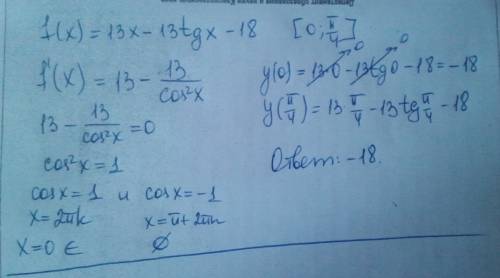 f(x) = 13x - 13tgx - 18 [0; π/4]
f'(x) = 13 - 13/cos²x
13 - 13/cos²x = 0
cos²x = 1
cosx = 1 и cosx = -1
x = 2πk x = π + 2πn
x = 0 ∈ ∅
y(0) = 13·0 - 13tg0 - 18 = -18
0 0
y(π/4) = 13 π/4 - 13tg π/4 - 18
Ответ: -18.